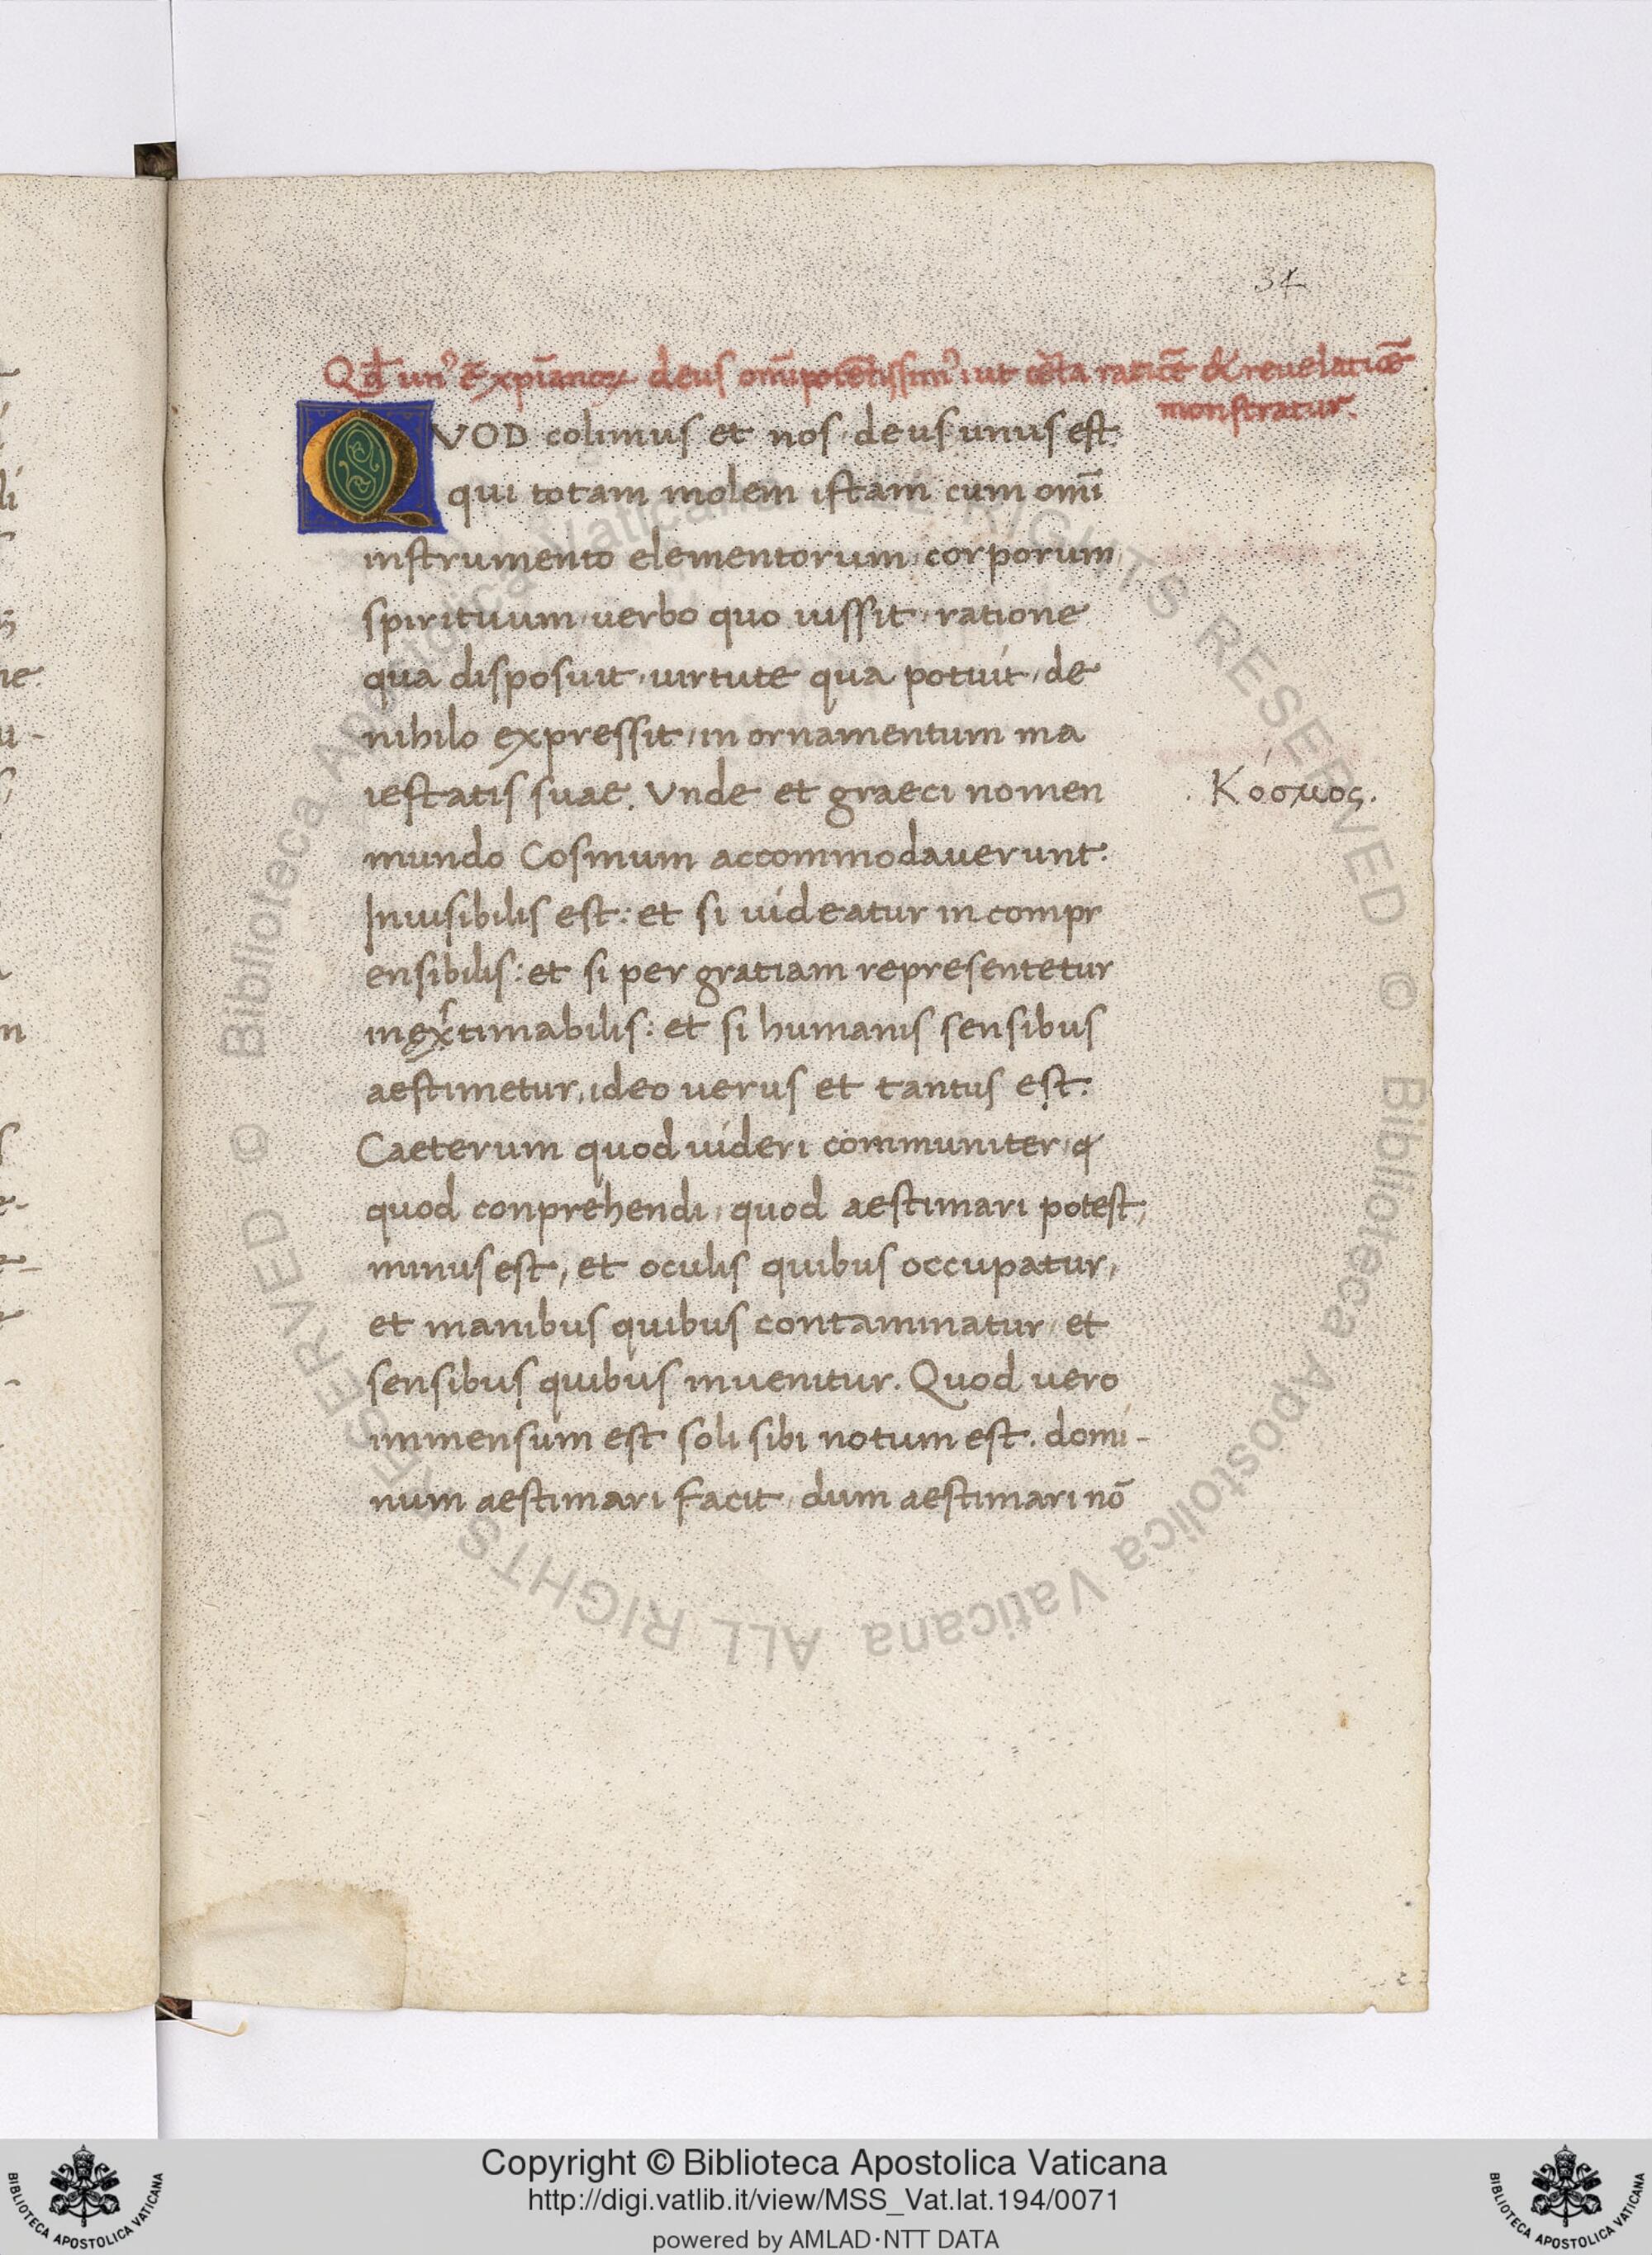 34
Qđ un⁹ ē xp̄ianoꝝ deus om̄ipotētissim⁹ ut ratiōē & reuelatiōē
monstratur.
QVOD colimus et nos, deus unus est
qui totam molem istam cum omī
instrumento elementorum, corporum
spirituum, uerbo quo iussit, ratione
qua disposuit, uirtute qua potuit, de
nihilo expressit, in ornamentum ma
iestatis suae. Vnde et graeci nomen
. Κόσμος.
mundo Cosmum accommodauerunt.
Inuisibilis est: et si uideatur incompr
ensibilis: et si per gratiam representetur
inęxtimabilis: et si humanis sensibus
aestimetur, ideo uerus et tantus est.
Caeterum quod uideri communiter, q
quod conprehendi, quod aestimari potest,
minus est, et oculis quibus occupatur,
et manibus quibus contaminatur, et
sensibus quibus inuenitur. Quod uero
immensum est soli sibi notum est. domi-
num aestimari facit, dum aestimari nō
Copyright © Biblioteca Apostolica Vaticana
http://digi.vatlib.it/view/MSS_Vat.lat.194/0071
powered by AMLAD·NTT DATA
BIBLIOTECA APOSTOLICA VATICANA
BIBLIOTECA APOSTOLICA VATICANA
© Biblioteca Apostolica Vaticana ALL RIGHTS RESERVED © Biblioteca Apostolica Vaticana ALL RIGHTS RESERVED